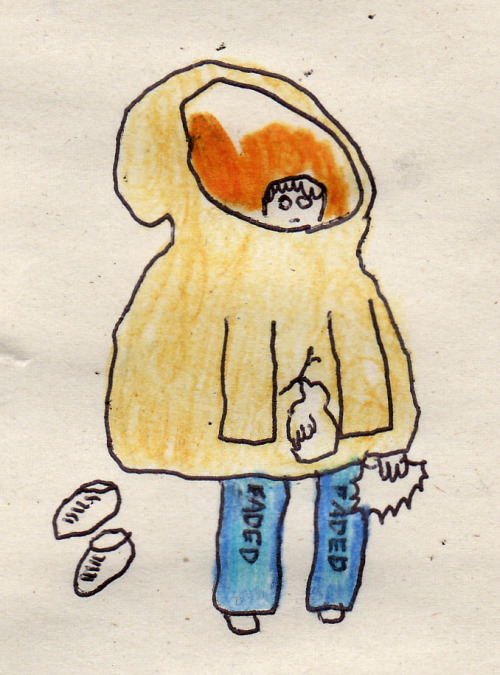 FADED
FADED